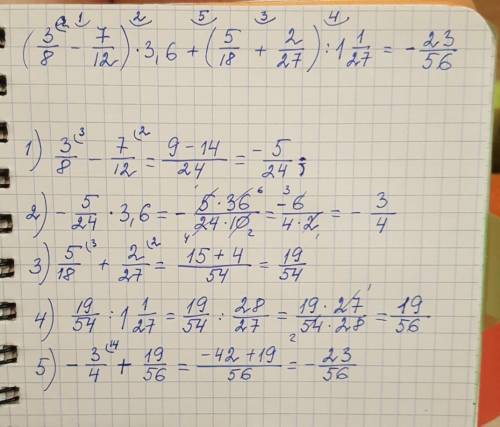 1 2 5 3 4
(3/8 - 7/12) · 3,6 + (5/18 + 2/27) : 1 1/27 = - 23/56
1) 3/8 (3 - 7/12 (2 = 9 - 14/24 = - 5/24 ;
2) - 5/24 · 3,6 = - 5 · 36 6/4 24 · 10 2 = 3 - 6/4 · 2 1 = - 3/4
3) 5/18 (3 + 2/27 (2 = 15 + 4/54 = 19/54
4) 19/54 : 1 1/27 = 19/54 : 28/27 = 19 · 27 1/2 54 · 28 = 19/56
5) - 3/4 (14 + 19/56 = -42 + 19/56 = - 23/56